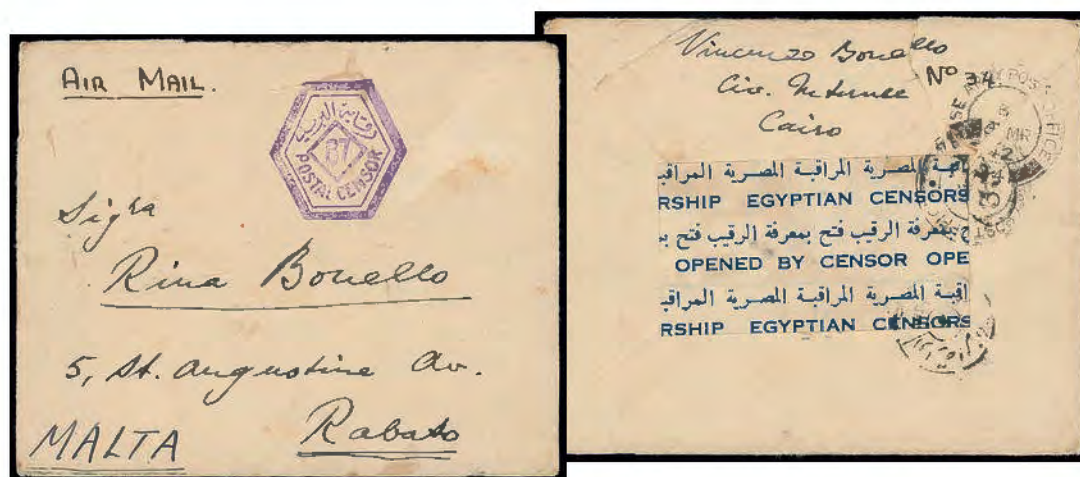 AIR MAIL.
رقابة البريد
87
POSTAL CENSOR
Sigra
Rina Bonello
5, St. Augustine Av.
Rabato
MALTA
Vincenzo Bonello
Civ. Internee
Cairo
Nº 34
POST OFFICE
MR
قبة المصرية المراقبة المصرية المراقب
RSHIP EGYPTIAN CENSORS
بمعرفة الرقيب فتح بمعرفة الرقيب فتح بم
OPENED BY CENSOR OPE
اقبة المصرية المراقبة المصرية المراقب
RSHIP EGYPTIAN CENSORS